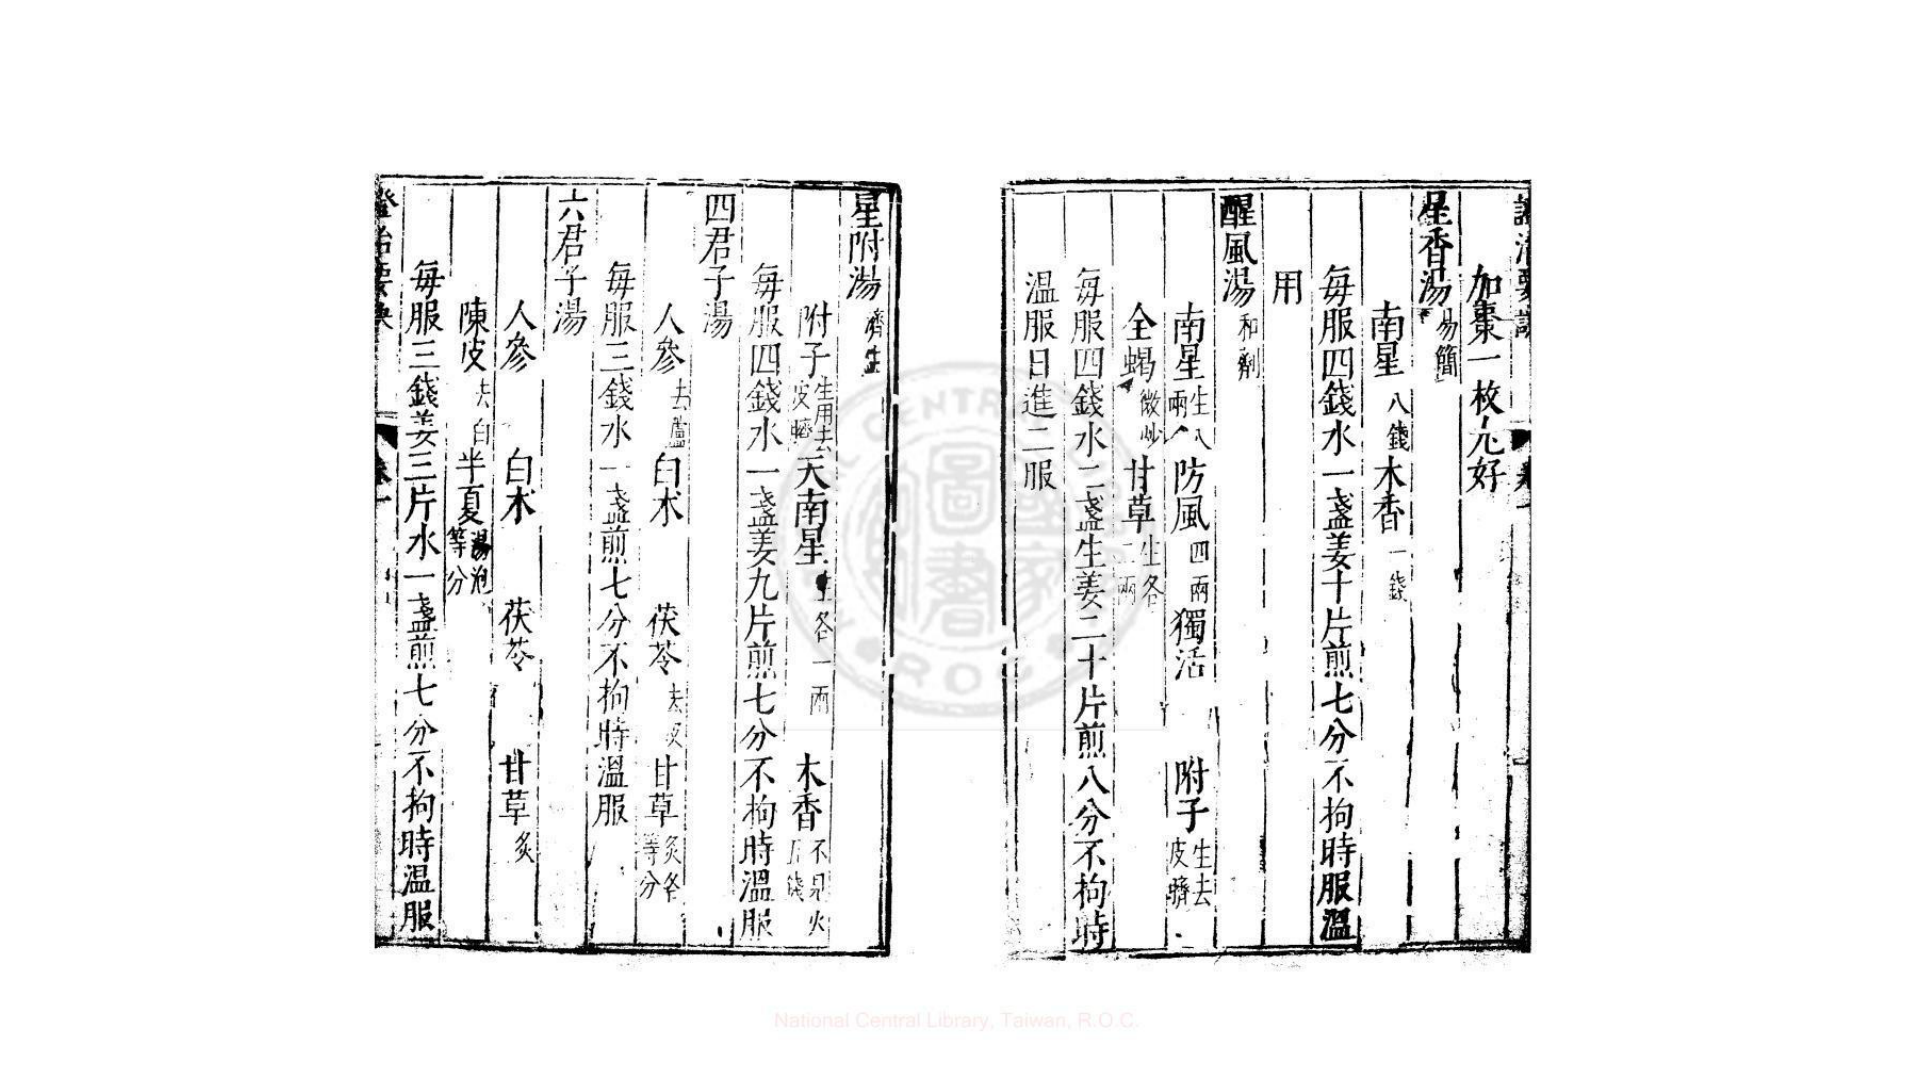 加棗一枚尤好
星香湯 易簡
南星 八錢 木香 一錢
每服四錢水一盞姜十片煎七分不拘時服溫
用
醒風湯 和劑
南星 生八兩 防風 四兩 獨活 附子 生去皮臍
全蝎 微炒 甘草 生各二兩
每服四錢水二盞生姜二十片煎八分不拘時
溫服日進二服
星附湯 濟生
附子 生用去皮臍 天南星 生各一兩 木香 不見火五錢
每服四錢水一盞姜九片煎七分不拘時溫服
四君子湯
人參 去蘆 白朮 茯苓 去皮 甘草 炙各等分
每服三錢水一盞煎七分不拘時溫服
六君子湯
人參 白朮 茯苓 甘草 炙
陳皮 去白 半夏 湯泡等分
每服三錢姜三片水一盞煎七分不拘時溫服
證治要訣
卷一
National Central Library, Taiwan, R.O.C.